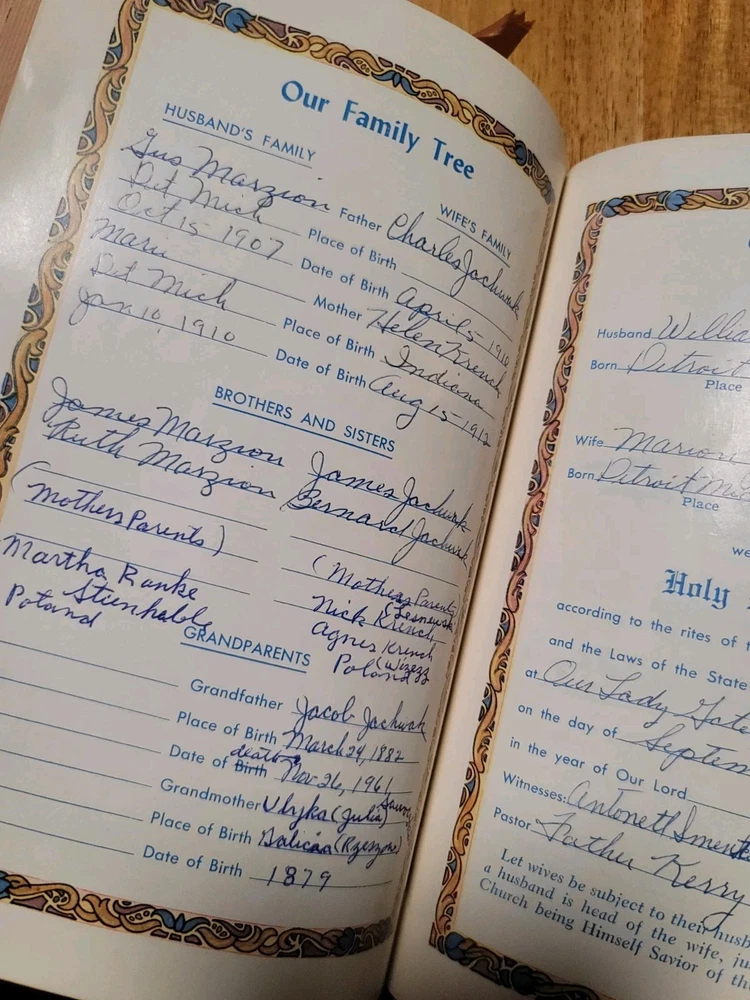 Our Family Tree
HUSBAND'S FAMILY
WIFE'S FAMILY
Gus Marzion Father Charles Jachwak
Det Mich Place of Birth
Oct 15-1907 Date of Birth April 5-1910
Marie Mother Helen Krench
Det Mich Place of Birth Indiana
Jan 10, 1910 Date of Birth Aug 15-1912
BROTHERS AND SISTERS
James Marzion James Jachwak
Ruth Marzion Bernard Jachwak
(Mothers Parents) (Mothers Parents)
Martha Ranke Nick Krench
Agnes Krench
Poland Poland
GRANDPARENTS
Grandfather Jacob Jachwak
Place of Birth March 24, 1882
death
Date of Birth Nov 26, 1961
Grandmother Ulyka (Julia)
Place of Birth Galicia
Date of Birth 1879
Husband Willia
Born Detroit
Place
Wife Marion
Born Detroit Mi
Place
we
Holy
according to the rites of t
and the Laws of the State
at Our Lady Gate
on the day of Septem
in the year of Our Lord
Witnesses: Antonett
Pastor Father Kerry
Let wives be subject to their husb
a husband is head of the wife, ju
Church being Himself Savior of th